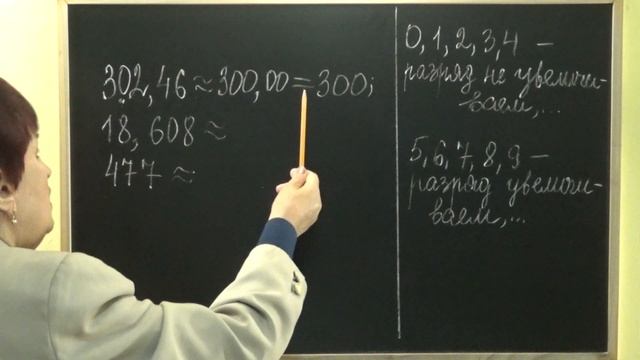 302,46 ≈ 300,00 = 300;
18,608 ≈
477 ≈
0, 1, 2, 3, 4 –
разряд не увеличи-
ваем,...
5, 6, 7, 8, 9 –
разряд увеличи-
ваем,...